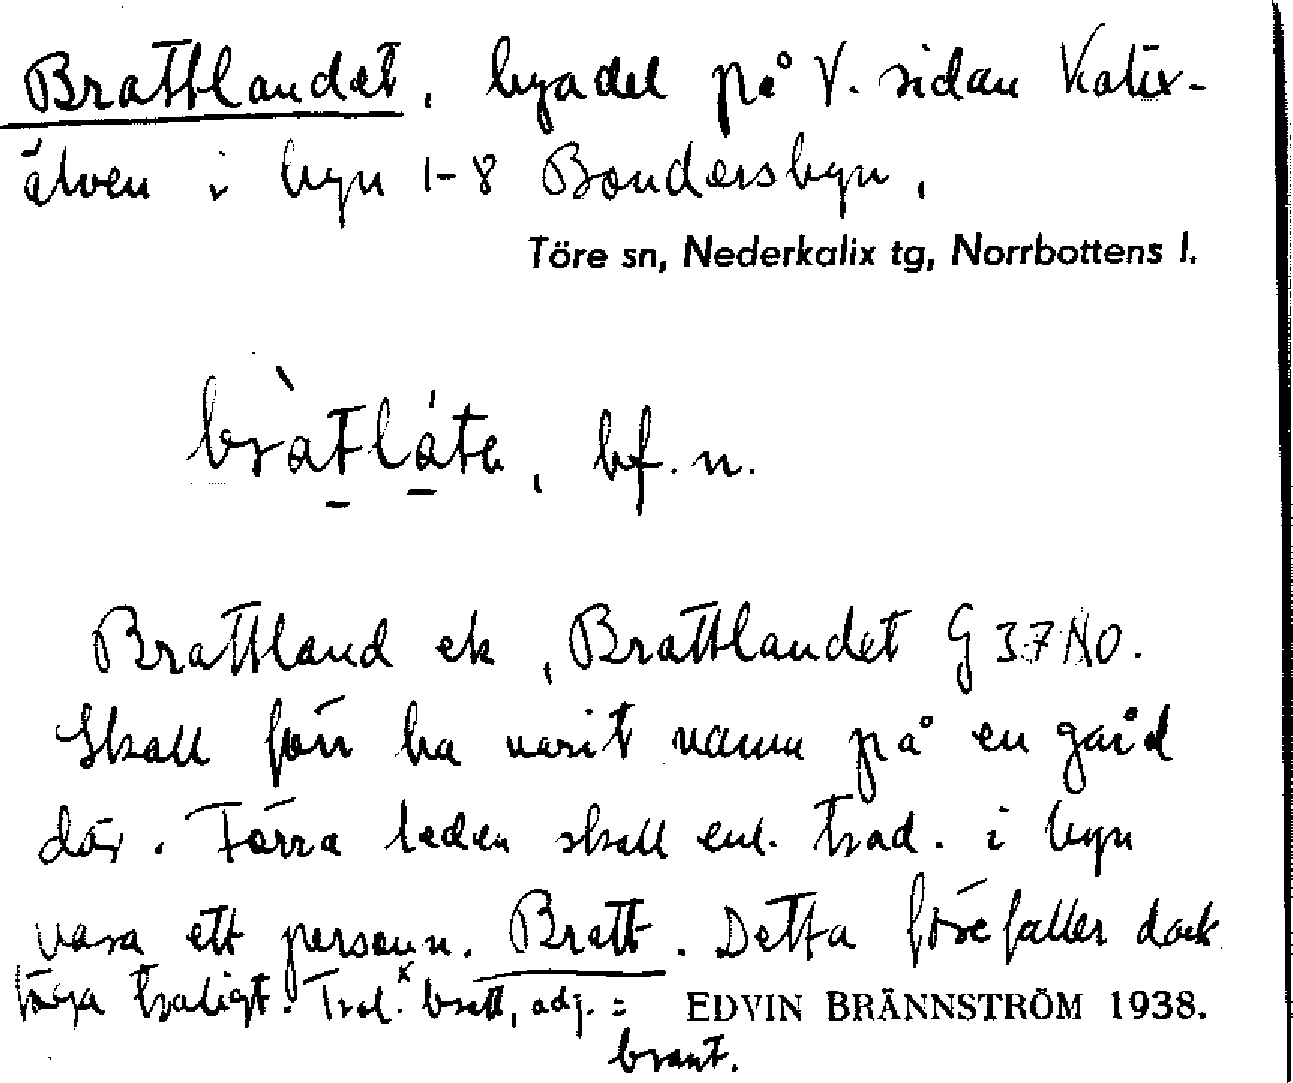 Brattlandet, byadel på V. sidan Kalix-
älven i byn 1-8 Bondersbyn.
Töre sn, Nederkalix tg, Norrbottens l.
bràtláte, bf. n.
Brattland ek, Brattlandet G 37 NO.
Skall förr ha varit namn på en gård
där. Förra leden skall enl. trad. i byn
vara ett personn. Bratt. Detta förefaller dock
föga troligt. Trol. x bratt, adj. =
EDVIN BRÄNNSTRÖM 1938.
brant.